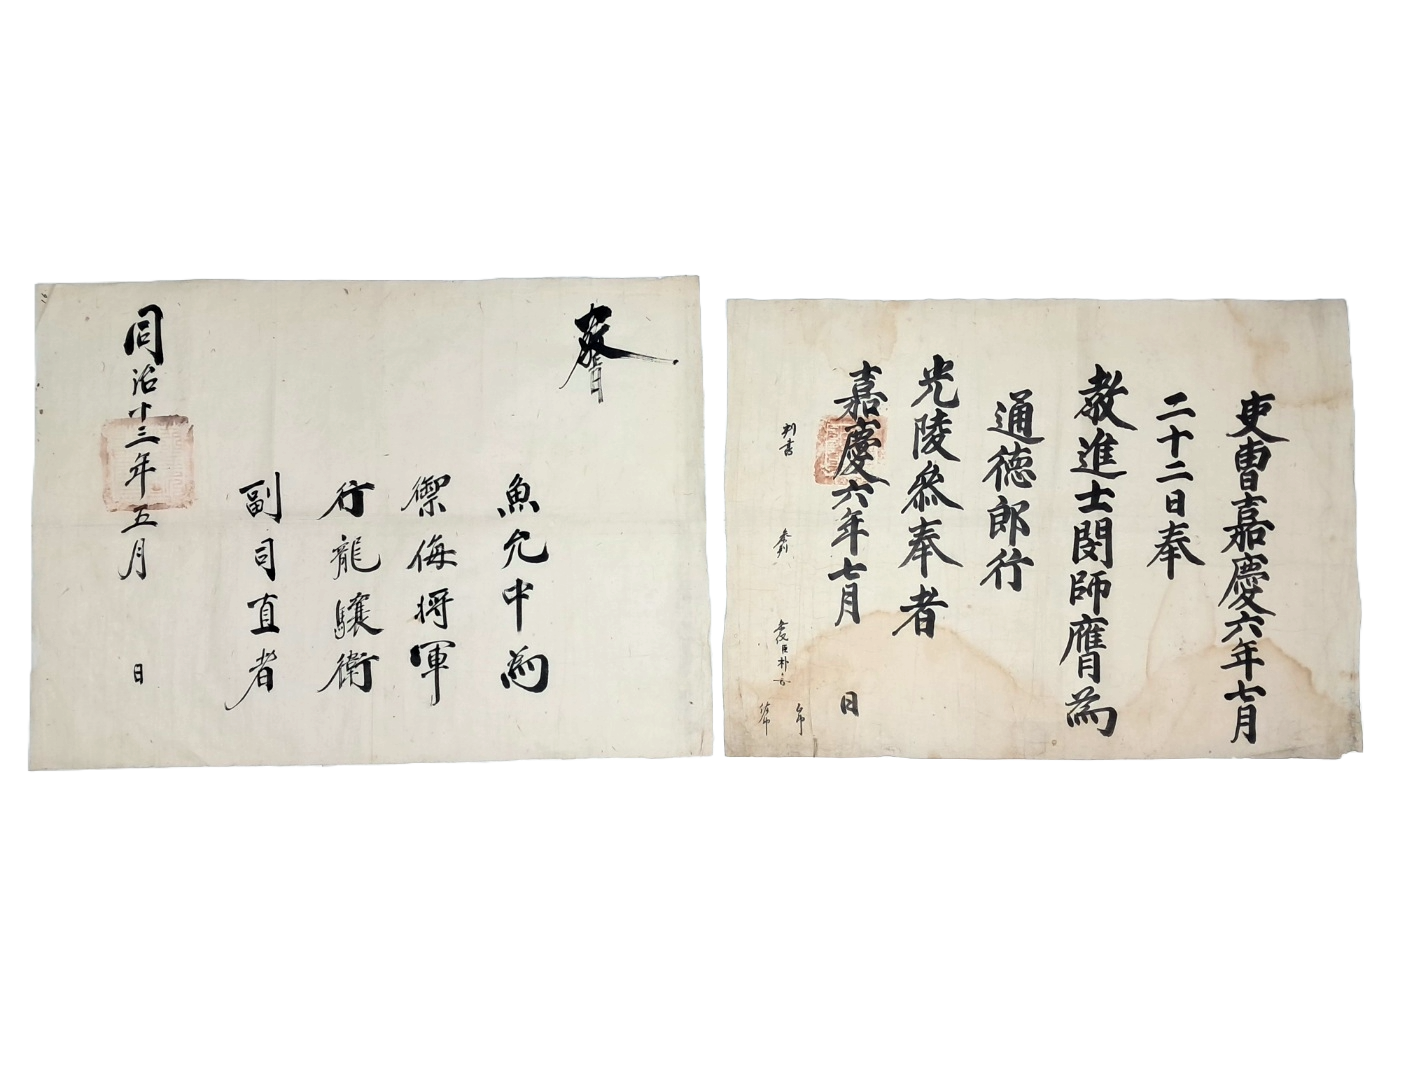 教旨
魚允中爲
禦侮將軍
行龍驤衛
副司直者
同治十三年五月 日
吏曹嘉慶六年七月
二十二日奉
教進士閔師膺爲
通德郎行
光陵參奉者
嘉慶六年七月 日
判書
參判